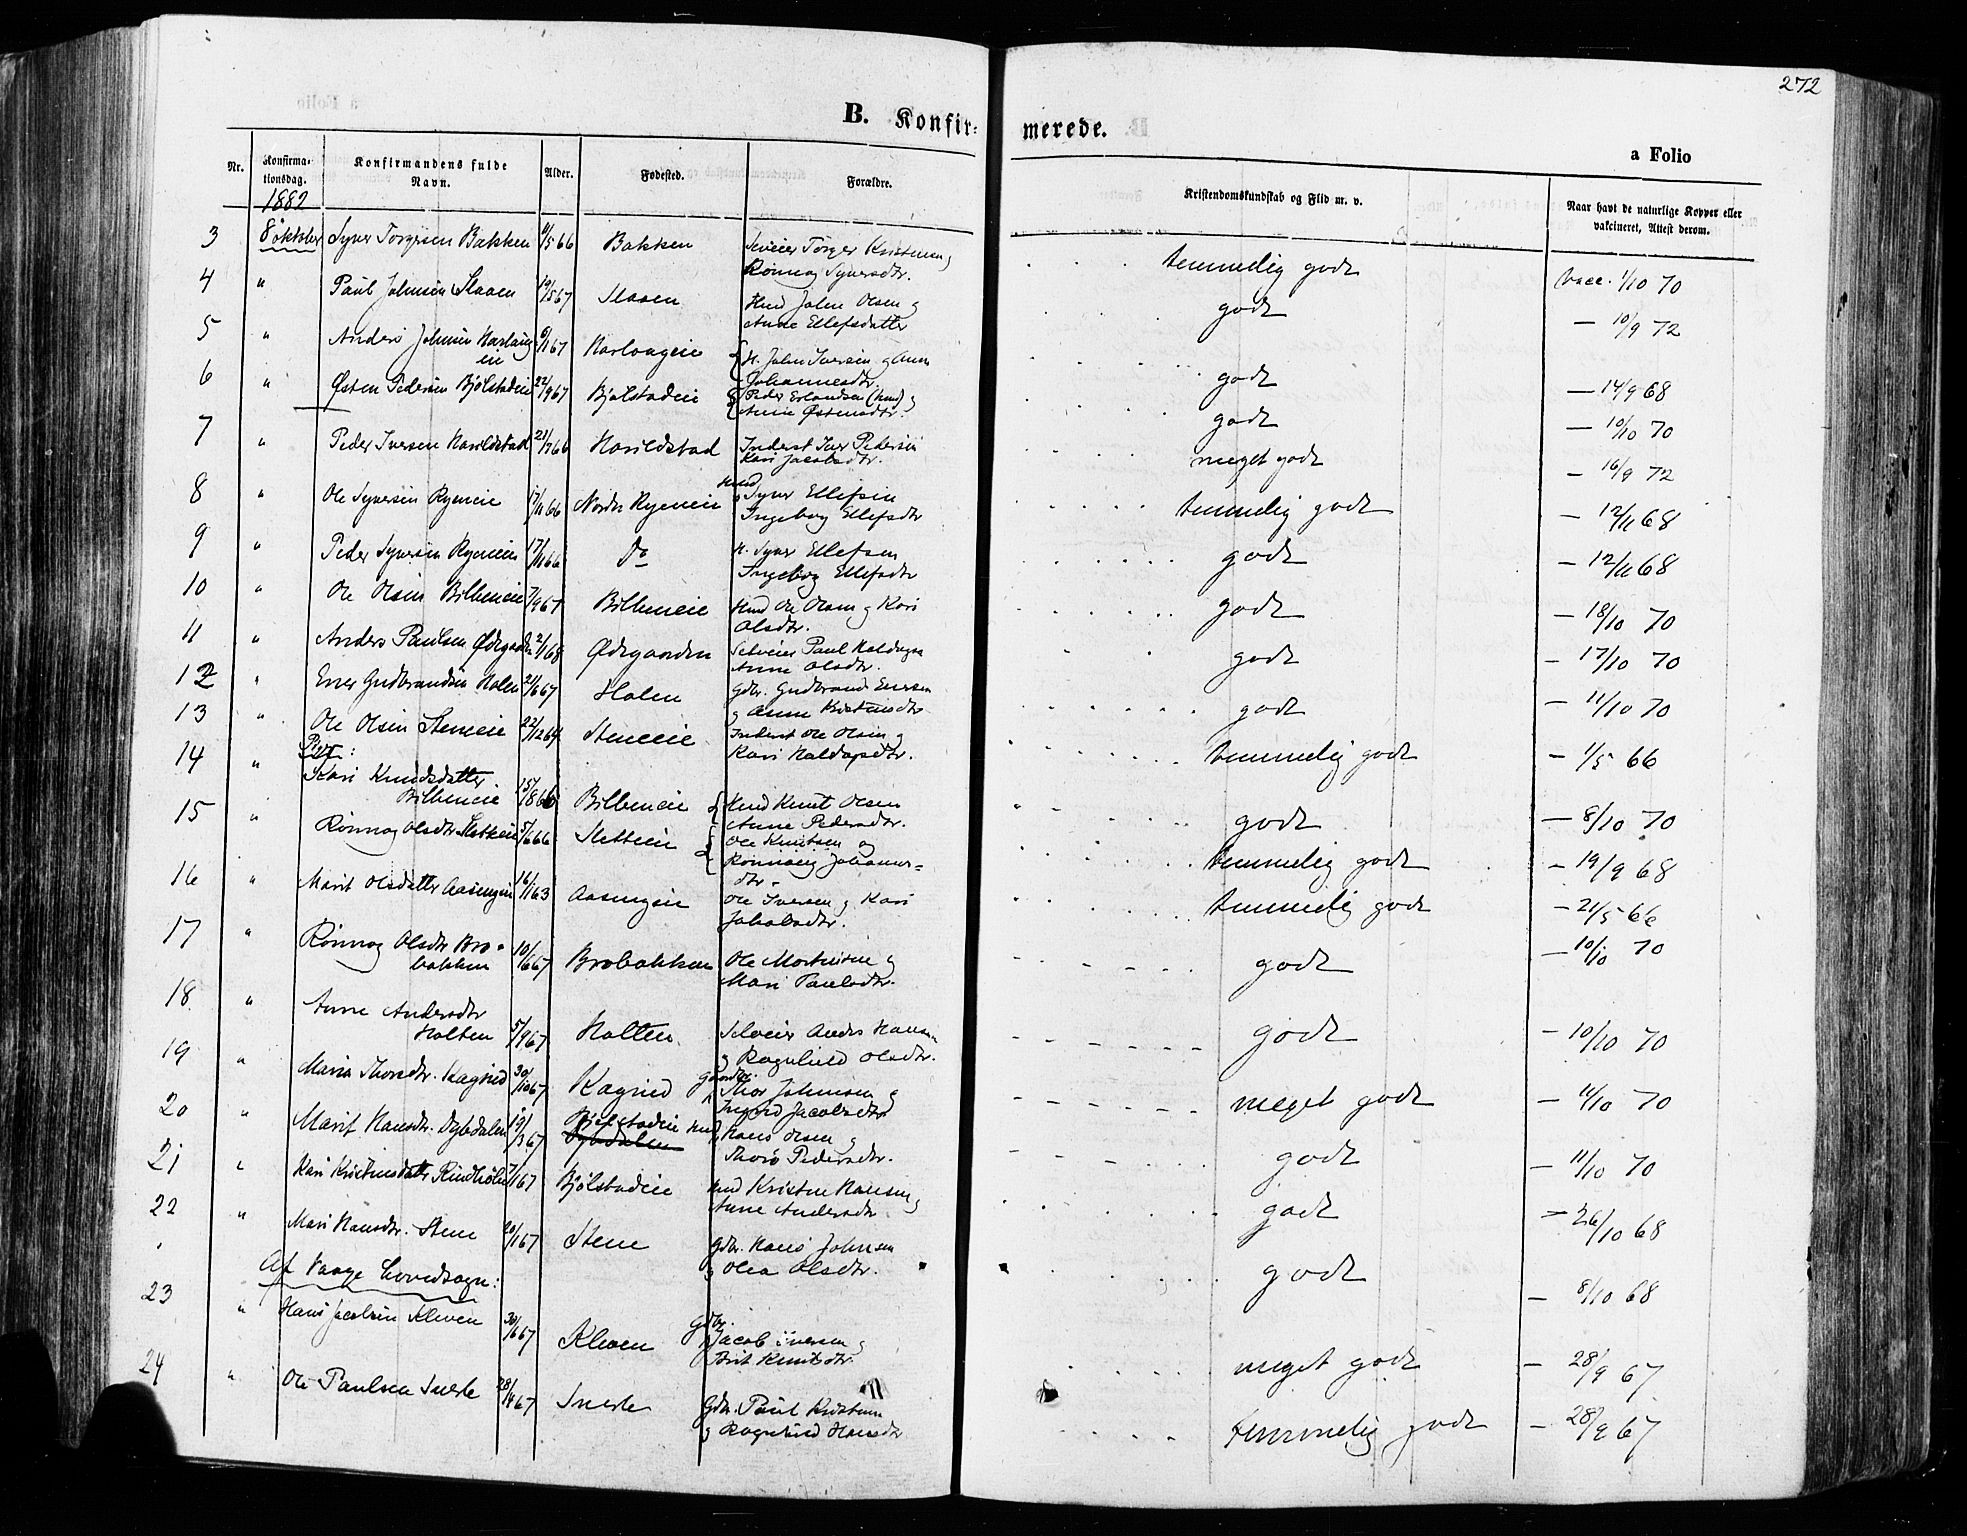 272
B. Konfir-
merede.
a Folio
Nr.
Konfirma-
tionsdag.
Konfirmandens fulde
Navn.
Alder.
Fødested.
Forældre.
Kristendomskundskab og Flid m. v.
Naar havt de naturlige Kopper eller
vakcineret, Attest derom.
1882
3 8 oktober Syver Torgersen Bakken 11/5 66 Bakken Selveier Torger Kristensen og
Rønnog Syversdtr. temmelig godt Vacc. 1/10 70
4 " Paul Johnsen Slaaen 19/5 67 Slaaen Hmd John Olsen og
Anne Ellefsdatter godt — 10/9 72
5 " Anders Johnsen Harlaug
eie 6/1 67 Harlaugeie H. John Iversen og Anne
Johannesdtr. godt — 14/9 68
6 " Østen Pedersen Bjølstadeie 22/9 67 Bjølstadeie Peder Erlandsen (hmd) og
Anne Østensdtr. godt — 10/10 70
7 " Peder Iversen Harildstad 21/7 66 Harildstad Inderst Iver Pedersen
Kari Jacobsdtr. meget godt — 16/9 72
8 " Ole Syversen Ryeneie 17/11 66 Nordr Ryeneie Hmd
Syver Ellefsen
Ingebog Ellefsdtr temmelig godt — 12/11 68
9 " Peder Syversen Ryeneie 17/11 66 Do H. Syver Ellefsen
Ingebog Ellefsdtr godt — 12/11 68
10 " Ole Olsen Bilbeneie 7/9 67 Bilbeneie Hmd Ole Olsen og Kari
Olsdtr. godt — 18/10 70
11 " Anders Paulsen Ødegaarden 2/1 68 Ødegaarden Selveier Paul Haldogsen
Anne Olsdtr. godt — 17/10 70
12 " Ener Gudbrandsen Holen 21/6 67 Holen Gdbr. Gudbrand Enersen
og Anne Kristensdtr godt — 11/10 70
13 " Ole Olsen Steneeie 22/12 64 Steneeie Inderst Ole Olsen og
Kari Haldogsdtr. temmelig godt — 1/5 66
Piger:
14 " Kari Knudsdatter
Bilbeneie 15/8 66 Bilbeneie Hmd Knut Olsen
Anne Pedersdtr. godt — 8/10 70
15 " Rønnog Olsdtr Sletteeie 5/6 66 Sletteeie Ole Knutsen og
Rønnaug Johannes-
dtr. temmelig godt — 19/9 68
16 " Marit Olsdatter Aasengeie 16/1 63 Aasengeie Ole Iversen og Kari
Jakobsdtr. temmelig godt — 21/5 66
17 " Rønnog Olsdtr Bro-
bakken 10/6 67 Brobakken Ole Mortensen og
Mari Paulsdtr. godt — 10/10 70
18 " Anne Andersdtr
Holten 5/9 67 Holten Selveier Anders Hansen
og Ragnhild Olsdtr. godt — 10/10 70
19 " Maria Thorsdtr. Kagned 30/10 67 Kagned Gaardbr.
Thor Johnsen og
Ingrid Jacobsdtr meget godt — 11/10 70
20 " Marit Hansdtr. Dybdalen 19/3 67 Bjølstadeie Hmd
Dybdalen Hans Olsen og
Thore Pedersdtr. godt — 11/10 70
21 " Kari Kristensdatter Rindhølen 7/1 67 Bjølstadeie Hmd Kristen Hansen og
Anne Andersdtr. godt — 26/10 68
22 " Mari Hansdtr. Stene 20/1 67 Stene Gdbr. Hans Johnsen
og Olea Olsdtr. godt — 8/10 68
Af Vaage hovedsogn:
23 " Hans Jacobsen Kleven 30/6 67 Kleven Gdbr.
Jacob Iversen og
Brit Knutsdtr. meget godt — 28/9 67
24 " Ole Paulsen Snerle 28/4 67 Snerle Gdbr. Paul Kristensen
og Ragnhild Hansdtr temmelig godt — 28/9 67